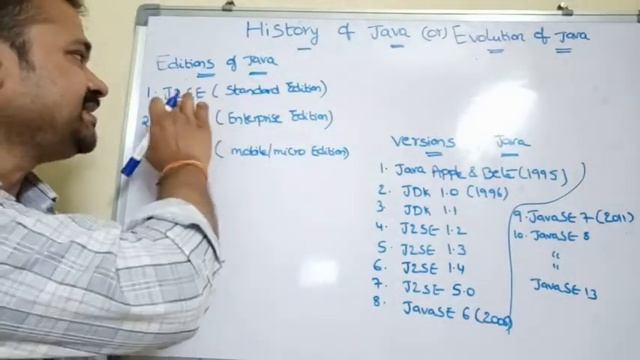 History of Java (or) Evolution of Java
Editions of Java
1. J2SE ( Standard Edition)
2. ( Enterprise Edition)
( mobile/micro Edition)
versions Java
1. Java Apple & Beta (1995)
2. JDK 1.0 (1996)
3. JDK 1.1
4. J2SE 1.2
5. J2SE 1.3
6. J2SE 1.4
7. J2SE 5.0
8. JavaSE 6 (2006)
9. JavaSE 7 (2011)
10. JavaSE 8
"
"
JavaSE 13